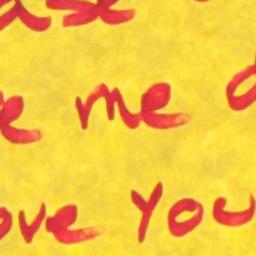 ase
e me
ove you